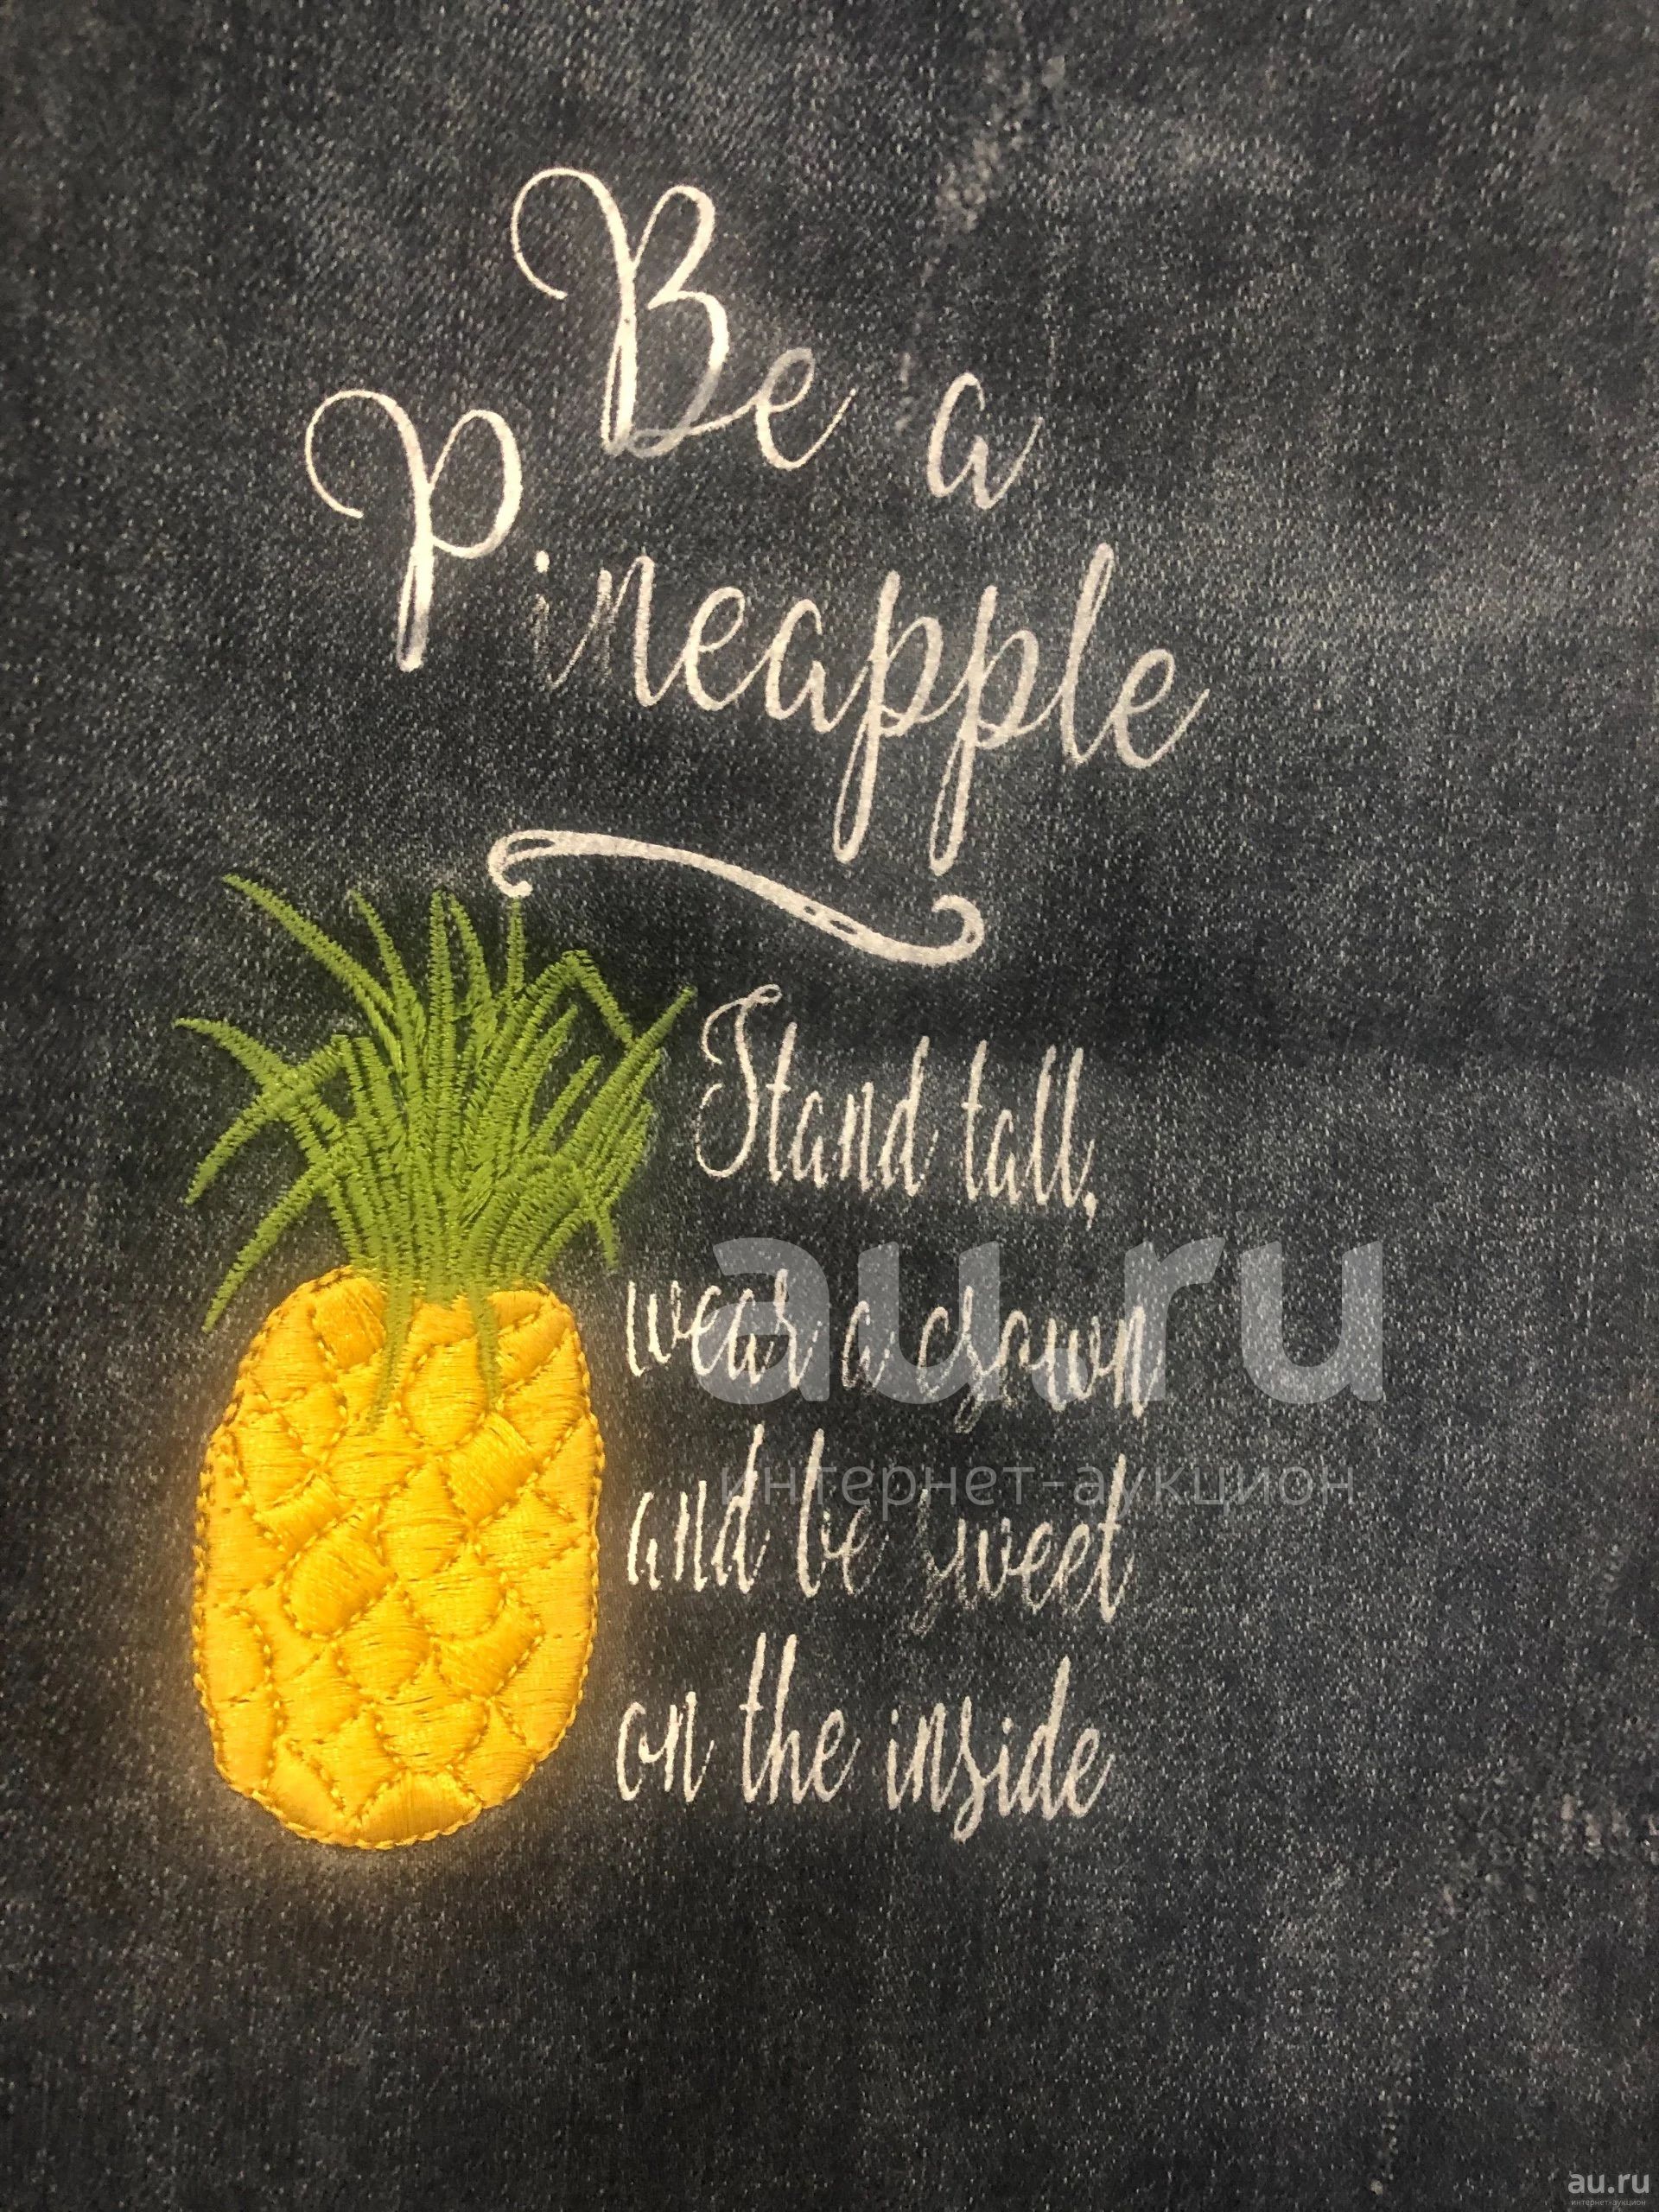 Be a
Pineapple
Stand tall,
wear a crown
and be sweet
on the inside
au.ru
интернет-аукцион
au.ru
интернет-аукцион